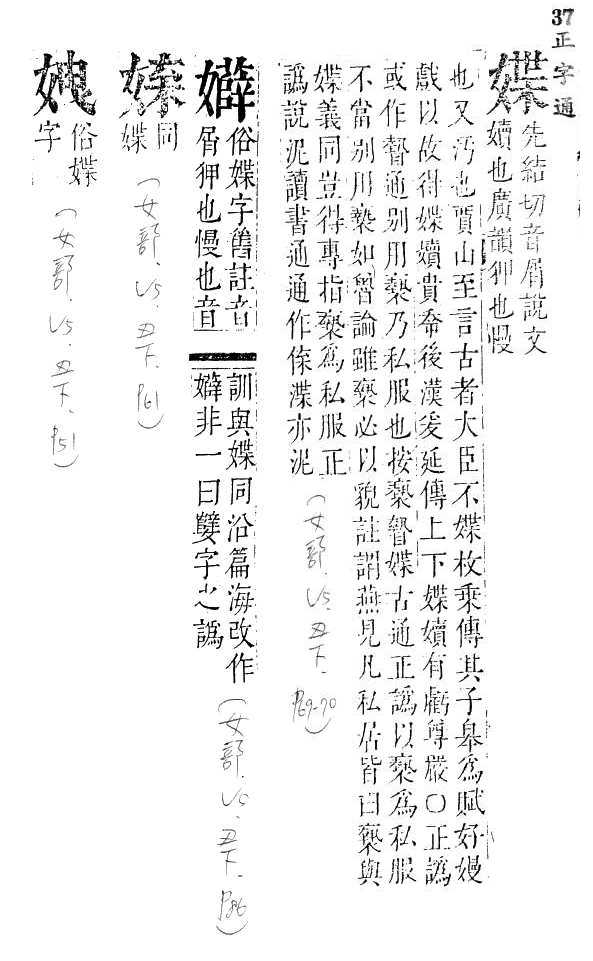 37正字通
媟先結切音屑說文
嬻也廣韻狎也慢
也又汚也賈山至言古者大臣不媟枚乘傳其子皐爲賦好嫚
戲以故得媟嬻貴幸後漢爰延傳上下媟嬻有虧尊嚴○正譌
或作暬通别用褻乃私服也按褻暬媟古通正譌以褻爲私服
不當别用褻如魯論雖褻必以貌註謂燕見凡私居皆曰褻與
媟義同豈得專指褻爲私服正
譌說泥讀書通通作渫亦泥
(女部.V5.丑下.P69-70)
俗媟字舊註音
屑狎也慢也音
訓與媟同沿篇海改作
非一曰字之譌
(女部.V5.丑下.P86)
同
媟
(女部.V5.丑下.P61)
俗媟
字
(女部.V5.丑下.P51)